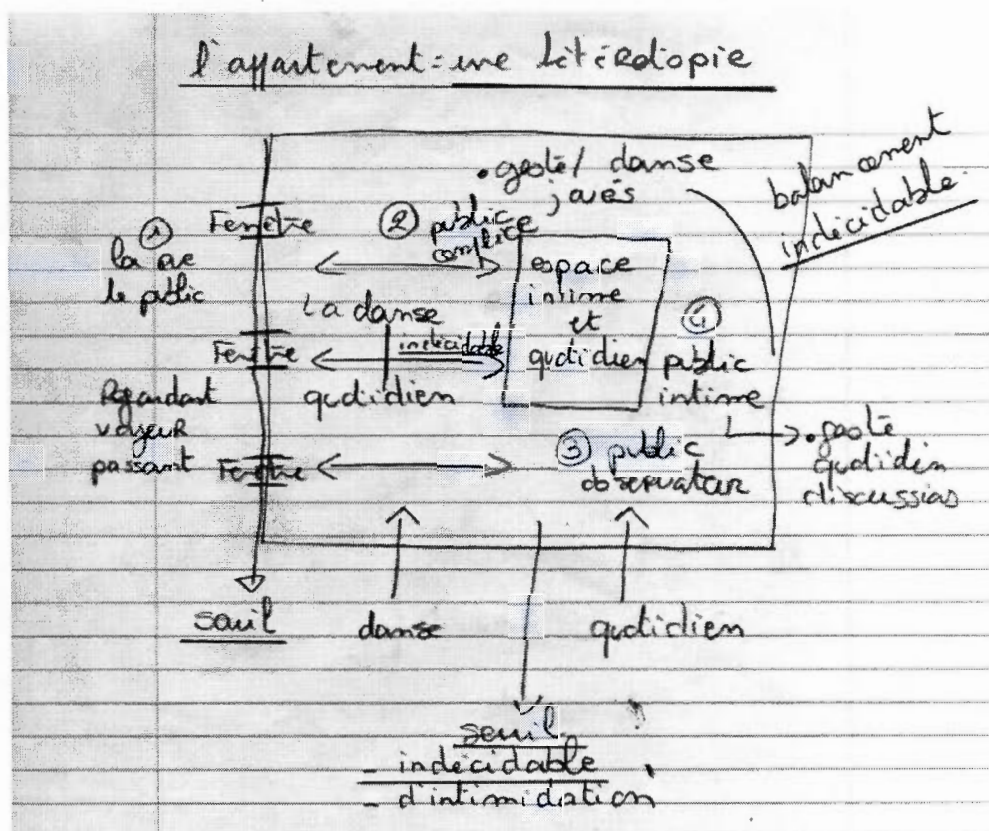 l'appartement = une hétérotopie
. geste / danse
joués
balancement
indécidable.
①
la rue
le public
Fenêtre
② public
complice
espace
intime
et
quotidien
La danse
indécidable
quotidien
Fenêtre
④
public
intime
Regardant
voyeur
passant
Fenêtre
③ public
observateur
. geste
quotidien
discussions
seuil
danse
quotidien
seuil
- indécidable
- d'intimidation